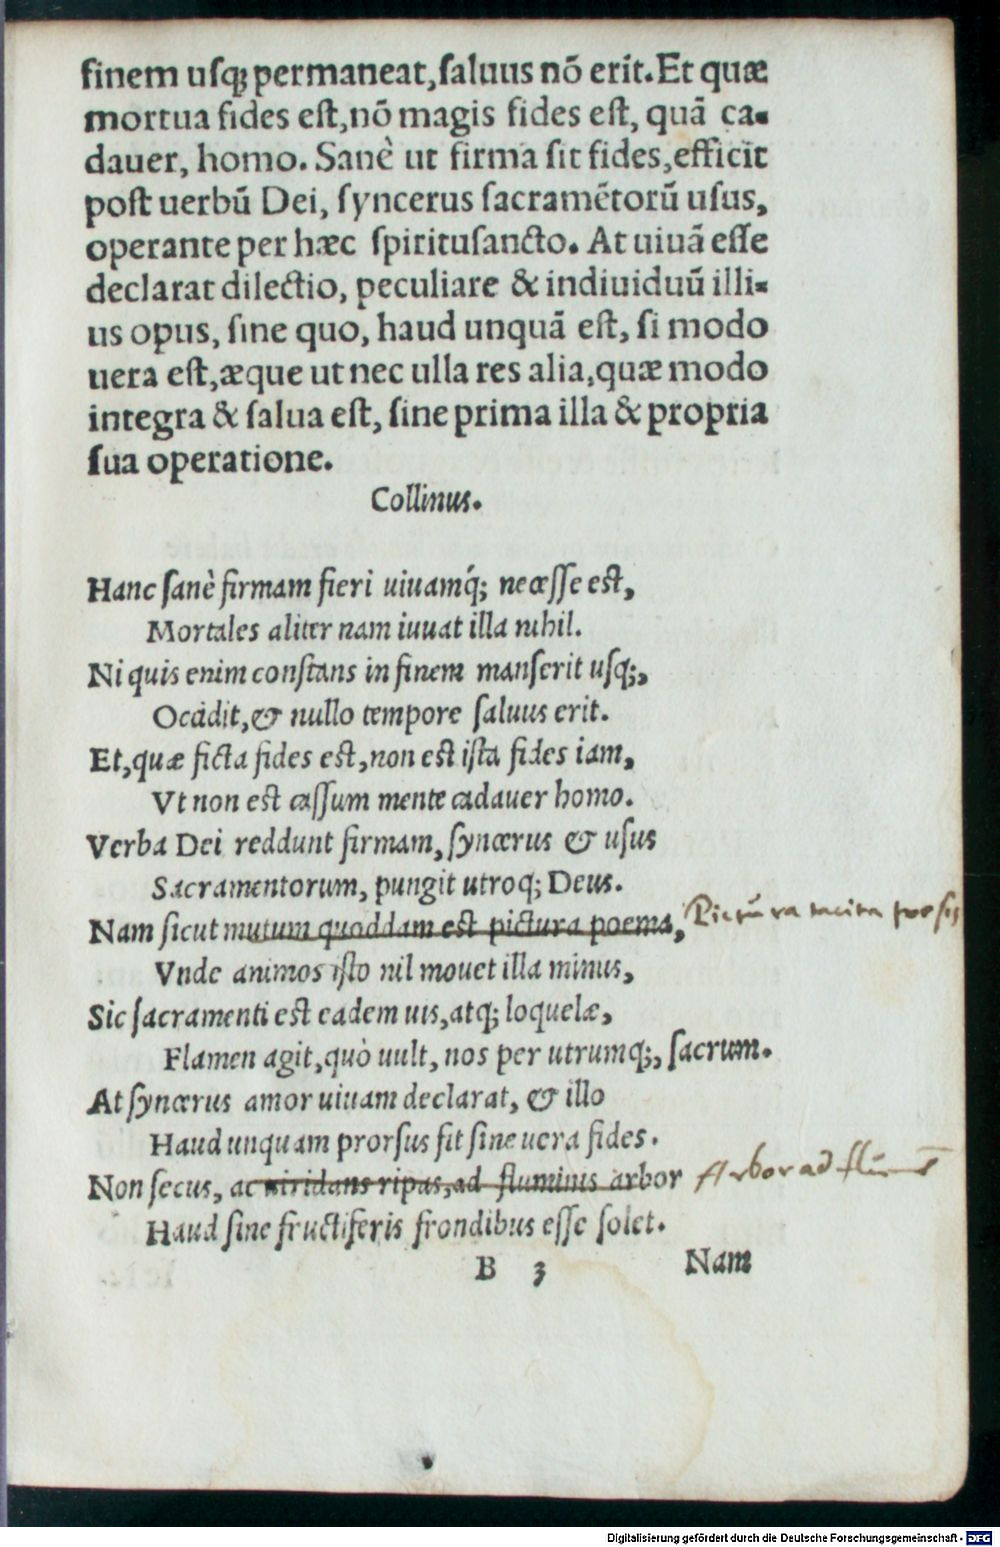 finem uſq; permaneat, ſaluus nō erit. Et quæ
mortua fides eſt, nō magis fides eſt, quā ca-
dauer, homo. Sanè ut firma ſit fides, efficit
poſt uerbū Dei, ſyncerus ſacramētorū uſus,
operante per hæc ſpirituſancto. At uiuā eſſe
declarat dilectio, peculiare & indiuiduū illi-
us opus, ſine quo, haud unquā eſt, ſi modo
uera eſt, æque ut nec ulla res alia, quæ modo
integra & ſalua eſt, ſine prima illa & propria
ſua operatione.
Collinus.
Hanc ſanè firmam fieri uiuamq́; neceſſe eſt,
Mortales aliter nam iuuat illa nihil.
Ni quis enim conſtans in finem manſerit uſq;,
Occidit, & nullo tempore ſaluus erit.
Et, quæ ficta fides eſt, non eſt iſta fides iam,
Vt non eſt caſſum mente cadauer homo.
Verba Dei reddunt firmam, ſyncerus & uſus
Sacramentorum, pungit utroq; Deus.
Nam ſicut mutum quoddam eſt pictura poema, Pictura tacita poesis
Vnde animos iſto nil mouet illa minus,
Sic ſacramenti eſt eadem uis, atq; loquelæ,
Flamen agit, quò uult, nos per utrumq;, ſacrum.
At ſyncerus amor uiuam declarat, & illo
Haud unquam prorſus fit ſine uera fides.
Non ſecus, ac uiridans ripas, ad fluminis arbor Arbor ad flumē
Haud ſine fructiferis frondibus eſſe ſolet.
B 3 Nam
Digitalisierung gefördert durch die Deutsche Forschungsgemeinschaft - DFG